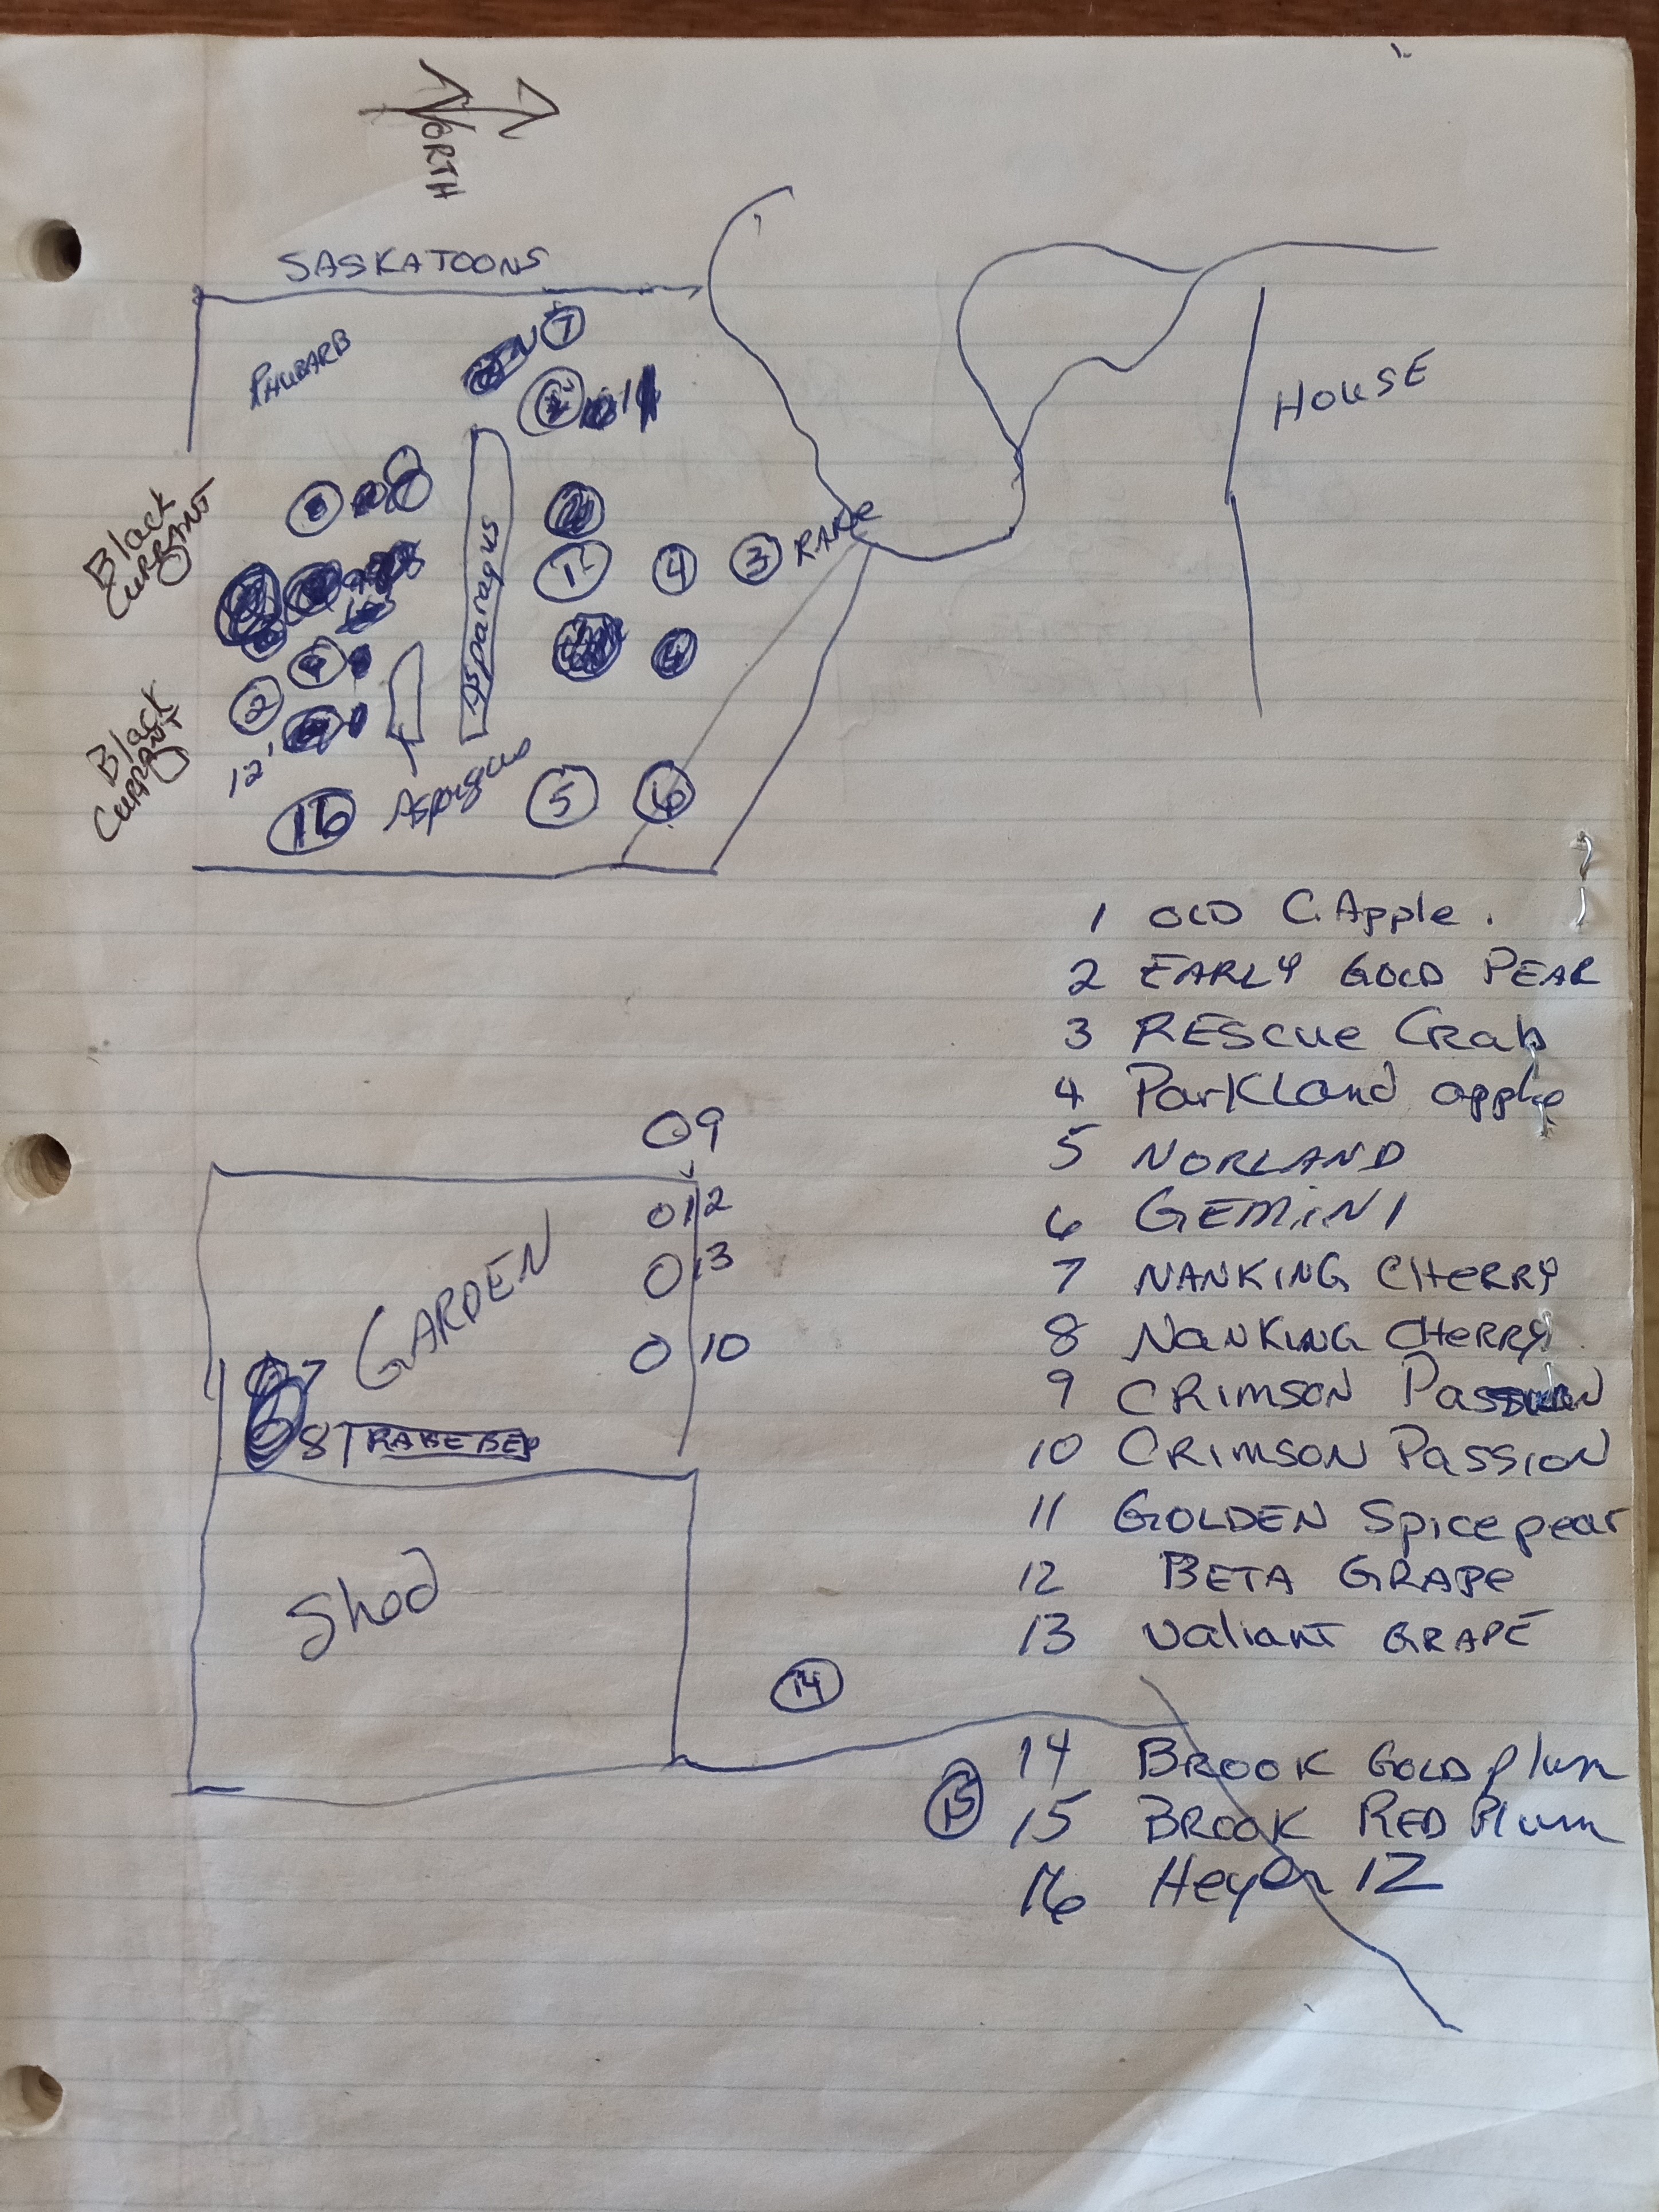 NORTH
SASKATOONS
RHUBARB
7
HOUSE
Black
CURRANT
Asparagus
1
4
3
2
9
Black
CURRANT
12'
16
5
6
1 OLD C. Apple.
2 EARLY GOLD PEAR
3 RESCUE Crab
4 Parkland apple
5 NORLAND
6 GEMINI
7 NANKING CHERRY
8 NANKING CHERRY
9 CRIMSON Passion
10 CRIMSON Passion
11 GOLDEN Spice pear
12 BETA GRAPE
13 Valiant GRAPE
9
12
13
10
GARDEN
7
8
Shed
14
15
14 BROOK GOLD plum
15 BROOK RED Plum
16 Heyer 12